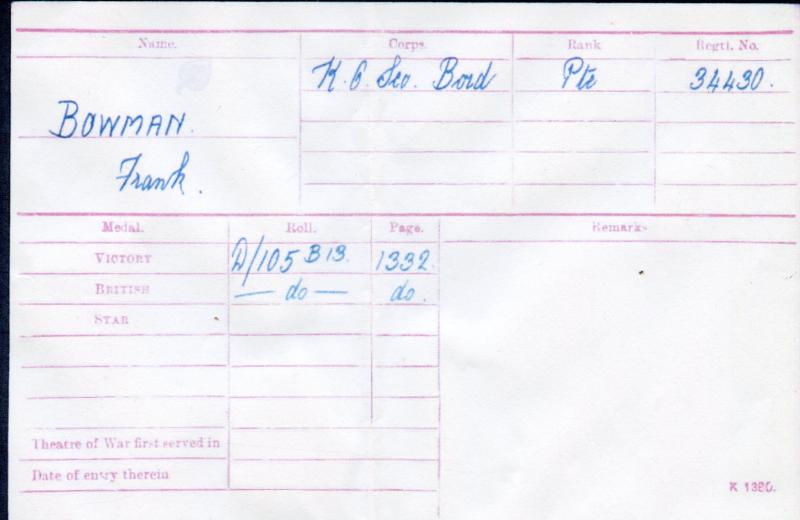 Name. Corps. Rank Regtl. No.
K. O. Sco. Bord Pte 34430.
BOWMAN.
Frank.
Medal. Roll. Page. Remarks
VICTORY D/105 B 13. 1332.
BRITISH — do — do.
STAR
Theatre of War first served in
Date of entry therein
K 1380.